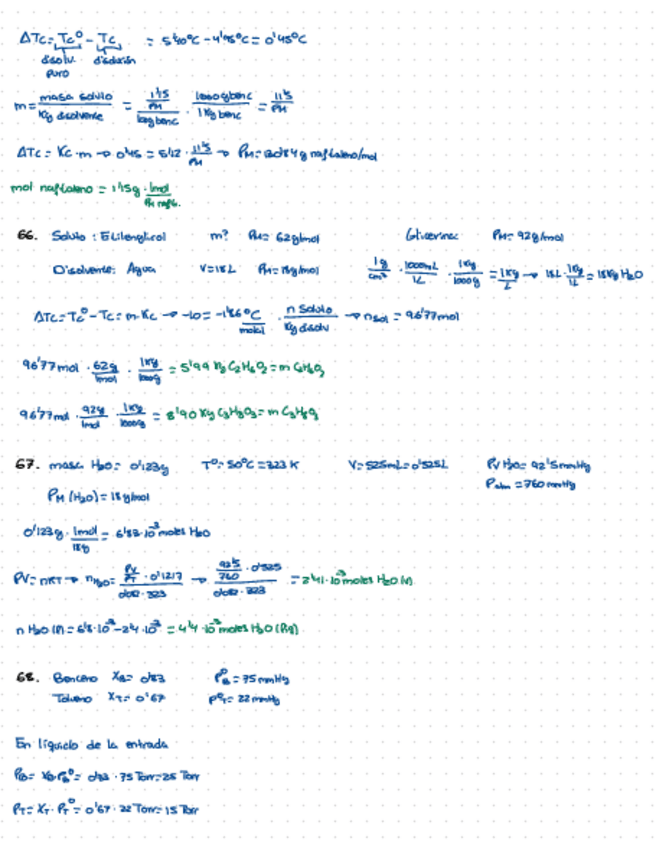 ΔTc = Tc⁰ - Tc = 5'40ºC - 4'95ºC = 0'45ºC
disolv. puro disolución
m = masa soluto / Kg disolvente = (1'15/PM) / 100g benc · 1000g benc / 1Kg benc = 11'5/PM
ΔTc = Kc · m → 0'45 = 5'12 · 11'5/PM → PM = 130'84 g naftaleno/mol
mol naftaleno = 1'15g · 1mol / PM naft.
66. Soluto: Etilenglicol m? PM = 62g/mol Glicerina: PM = 92g/mol
Disolvente: Agua V = 18L PM = 18g/mol 1g/cm³ · 1000mL/1L · 1Kg/1000g = 1Kg/L → 18L · 1Kg/1L = 18Kg H₂O
ΔTc = Tc⁰ - Tc = m · Kc → -10 = -1'86ºC/molal · n soluto / Kg disolv → n sol = 96'77mol
96'77mol · 62g/1mol · 1Kg/1000g = 5'99 Kg C₂H₆O₂ = m C₂H₆O₂
96'77mol · 92g/1mol · 1Kg/1000g = 8'90 Kg C₃H₈O₃ = m C₃H₈O₃
67. masa H₂O = 0'123g Tº = 50ºC = 323K V = 525mL = 0'525L PV H₂O = 92'5mmHg
PM (H₂O) = 18g/mol Patm = 760mmHg
0'123g · 1mol/18g = 6'83·10⁻³ moles H₂O
PV = nRT → nH₂O = / 0'082 · 323 → (92'5/760 · 0'525) / 0'082 · 323 = 2'41·10⁻³ moles H₂O (v)
n H₂O (l) = 6'8·10⁻³ - 2'4·10⁻³ = 4'4·10⁻³ moles H₂O (líq)
68. Benceno XB = 0'33 P⁰B = 75mmHg
Tolueno XT = 0'67 P⁰T = 22mmHg
En líquido de la entrada
PB = XB · PB⁰ = 0'33 · 75 Torr = 25 Torr
PT = XT · PT⁰ = 0'67 · 22 Torr = 15 Torr